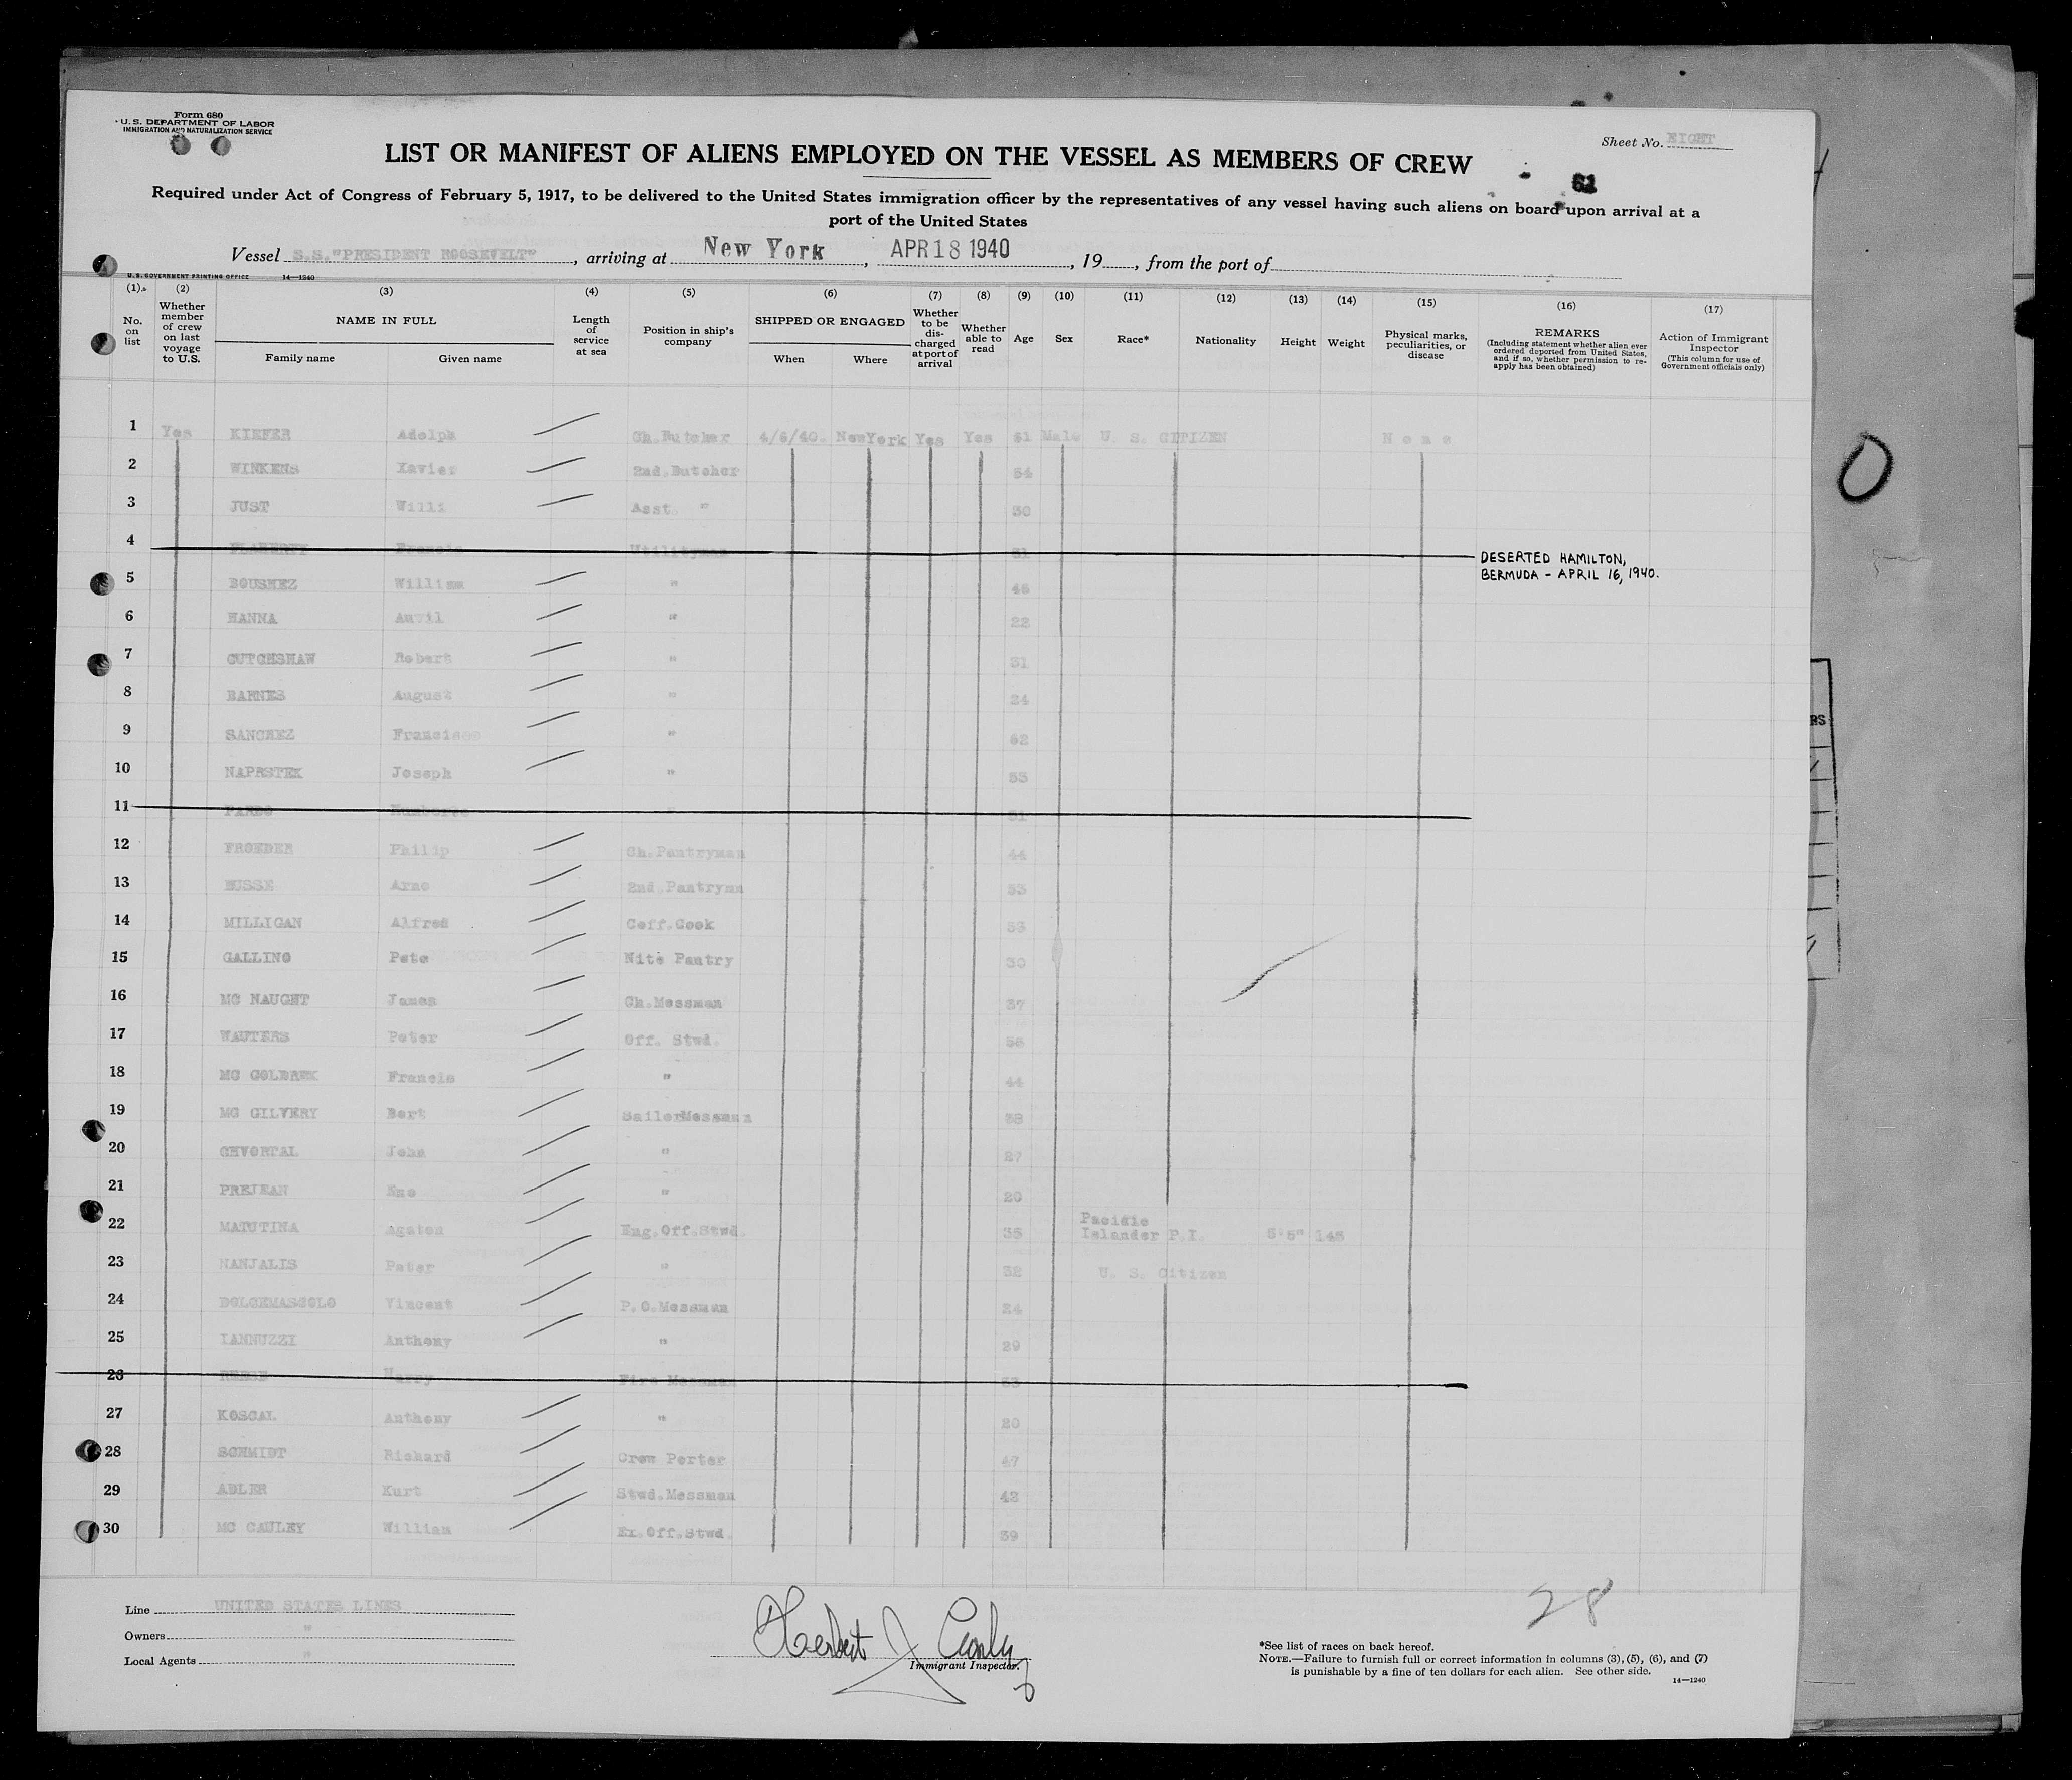 Form 680
U. S. DEPARTMENT OF LABOR
IMMIGRATION AND NATURALIZATION SERVICE
Sheet No. EIGHT
LIST OR MANIFEST OF ALIENS EMPLOYED ON THE VESSEL AS MEMBERS OF CREW
61
Required under Act of Congress of February 5, 1917, to be delivered to the United States immigration officer by the representatives of any vessel having such aliens on board upon arrival at a
port of the United States
Vessel S.S."PRESIDENT ROOSEVELT", arriving at New York, APR 18 1940, 19, from the port of
U. S. GOVERNMENT PRINTING OFFICE 14—1240
(1) No. on list
(2) Whether member of crew on last voyage to U.S.
(3) NAME IN FULL Family name Given name
(4) Length of service at sea
(5) Position in ship's company
(6) SHIPPED OR ENGAGED When Where
(7) Whether to be discharged at port of arrival
(8) Whether able to read
(9) Age
(10) Sex
(11) Race*
(12) Nationality
(13) Height
(14) Weight
(15) Physical marks, peculiarities, or disease
(16) REMARKS (Including statement whether alien ever ordered deported from United States, and if so, whether permission to re-apply has been obtained)
(17) Action of Immigrant Inspector (This column for use of Government officials only)
1 Yes KIEFER Adolph Ch.Butcher 4/6/40. NewYork Yes Yes 61 Male U. S. CITIZEN None
2 WINKENS Xavier 2nd.Butcher 54
3 JUST Willi Asst. " 30
4 FLAHERTY Francis Utilityman 31 DESERTED HAMILTON,
BERMUDA - APRIL 16, 1940.
5 BOUSHEZ William " 45
6 HANNA Anvil " 22
7 CUTCHSHAW Robert " 31
8 BARNES August " 24
9 SANCHEZ Francisco " 62
10 NAPRSTEK Joseph " 53
11 PARDO 31
12 FROEDER Philip Ch.Pantryman 44
13 BUSSE Arno 2nd.Pantrymn 53
14 MILLIGAN Alfred Coff.Cook 53
15 GALLINO Pete Nite Pantry 30
16 MC NAUGHT James Ch.Messman 37
17 WAUTERS Peter Off. Stwd. 56
18 MC GOLDREK Francis " 44
19 MC GILVERY Bert SailorMessman 38
20 CHVORTAL John " 27
21 PREJEAN Eno " 20
22 MATUTINA Agaton Eng.Off.Stwd. 35 Pacific
Islander P.I. 5'5" 145
23 NANJALIS Peter " 32 U. S. Citizen
24 DOLCEMASCOLO Vincent P.O.Messman 24
25 IANNUZZI Anthony " 29
26 Harry Fire Messman 33
27 KOSCAL Anthony " 20
28 SCHMIDT Richard Crew Porter 47
29 ADLER Kurt Stwd.Messman 42
30 MC CAULEY William Ex.Off.Stwd. 39
28
Line UNITED STATES LINES
Owners "
Local Agents "
Herbert J Conly
Immigrant Inspector.
*See list of races on back hereof.
NOTE.—Failure to furnish full or correct information in columns (3), (5), (6), and (7)
is punishable by a fine of ten dollars for each alien. See other side.
14—1240